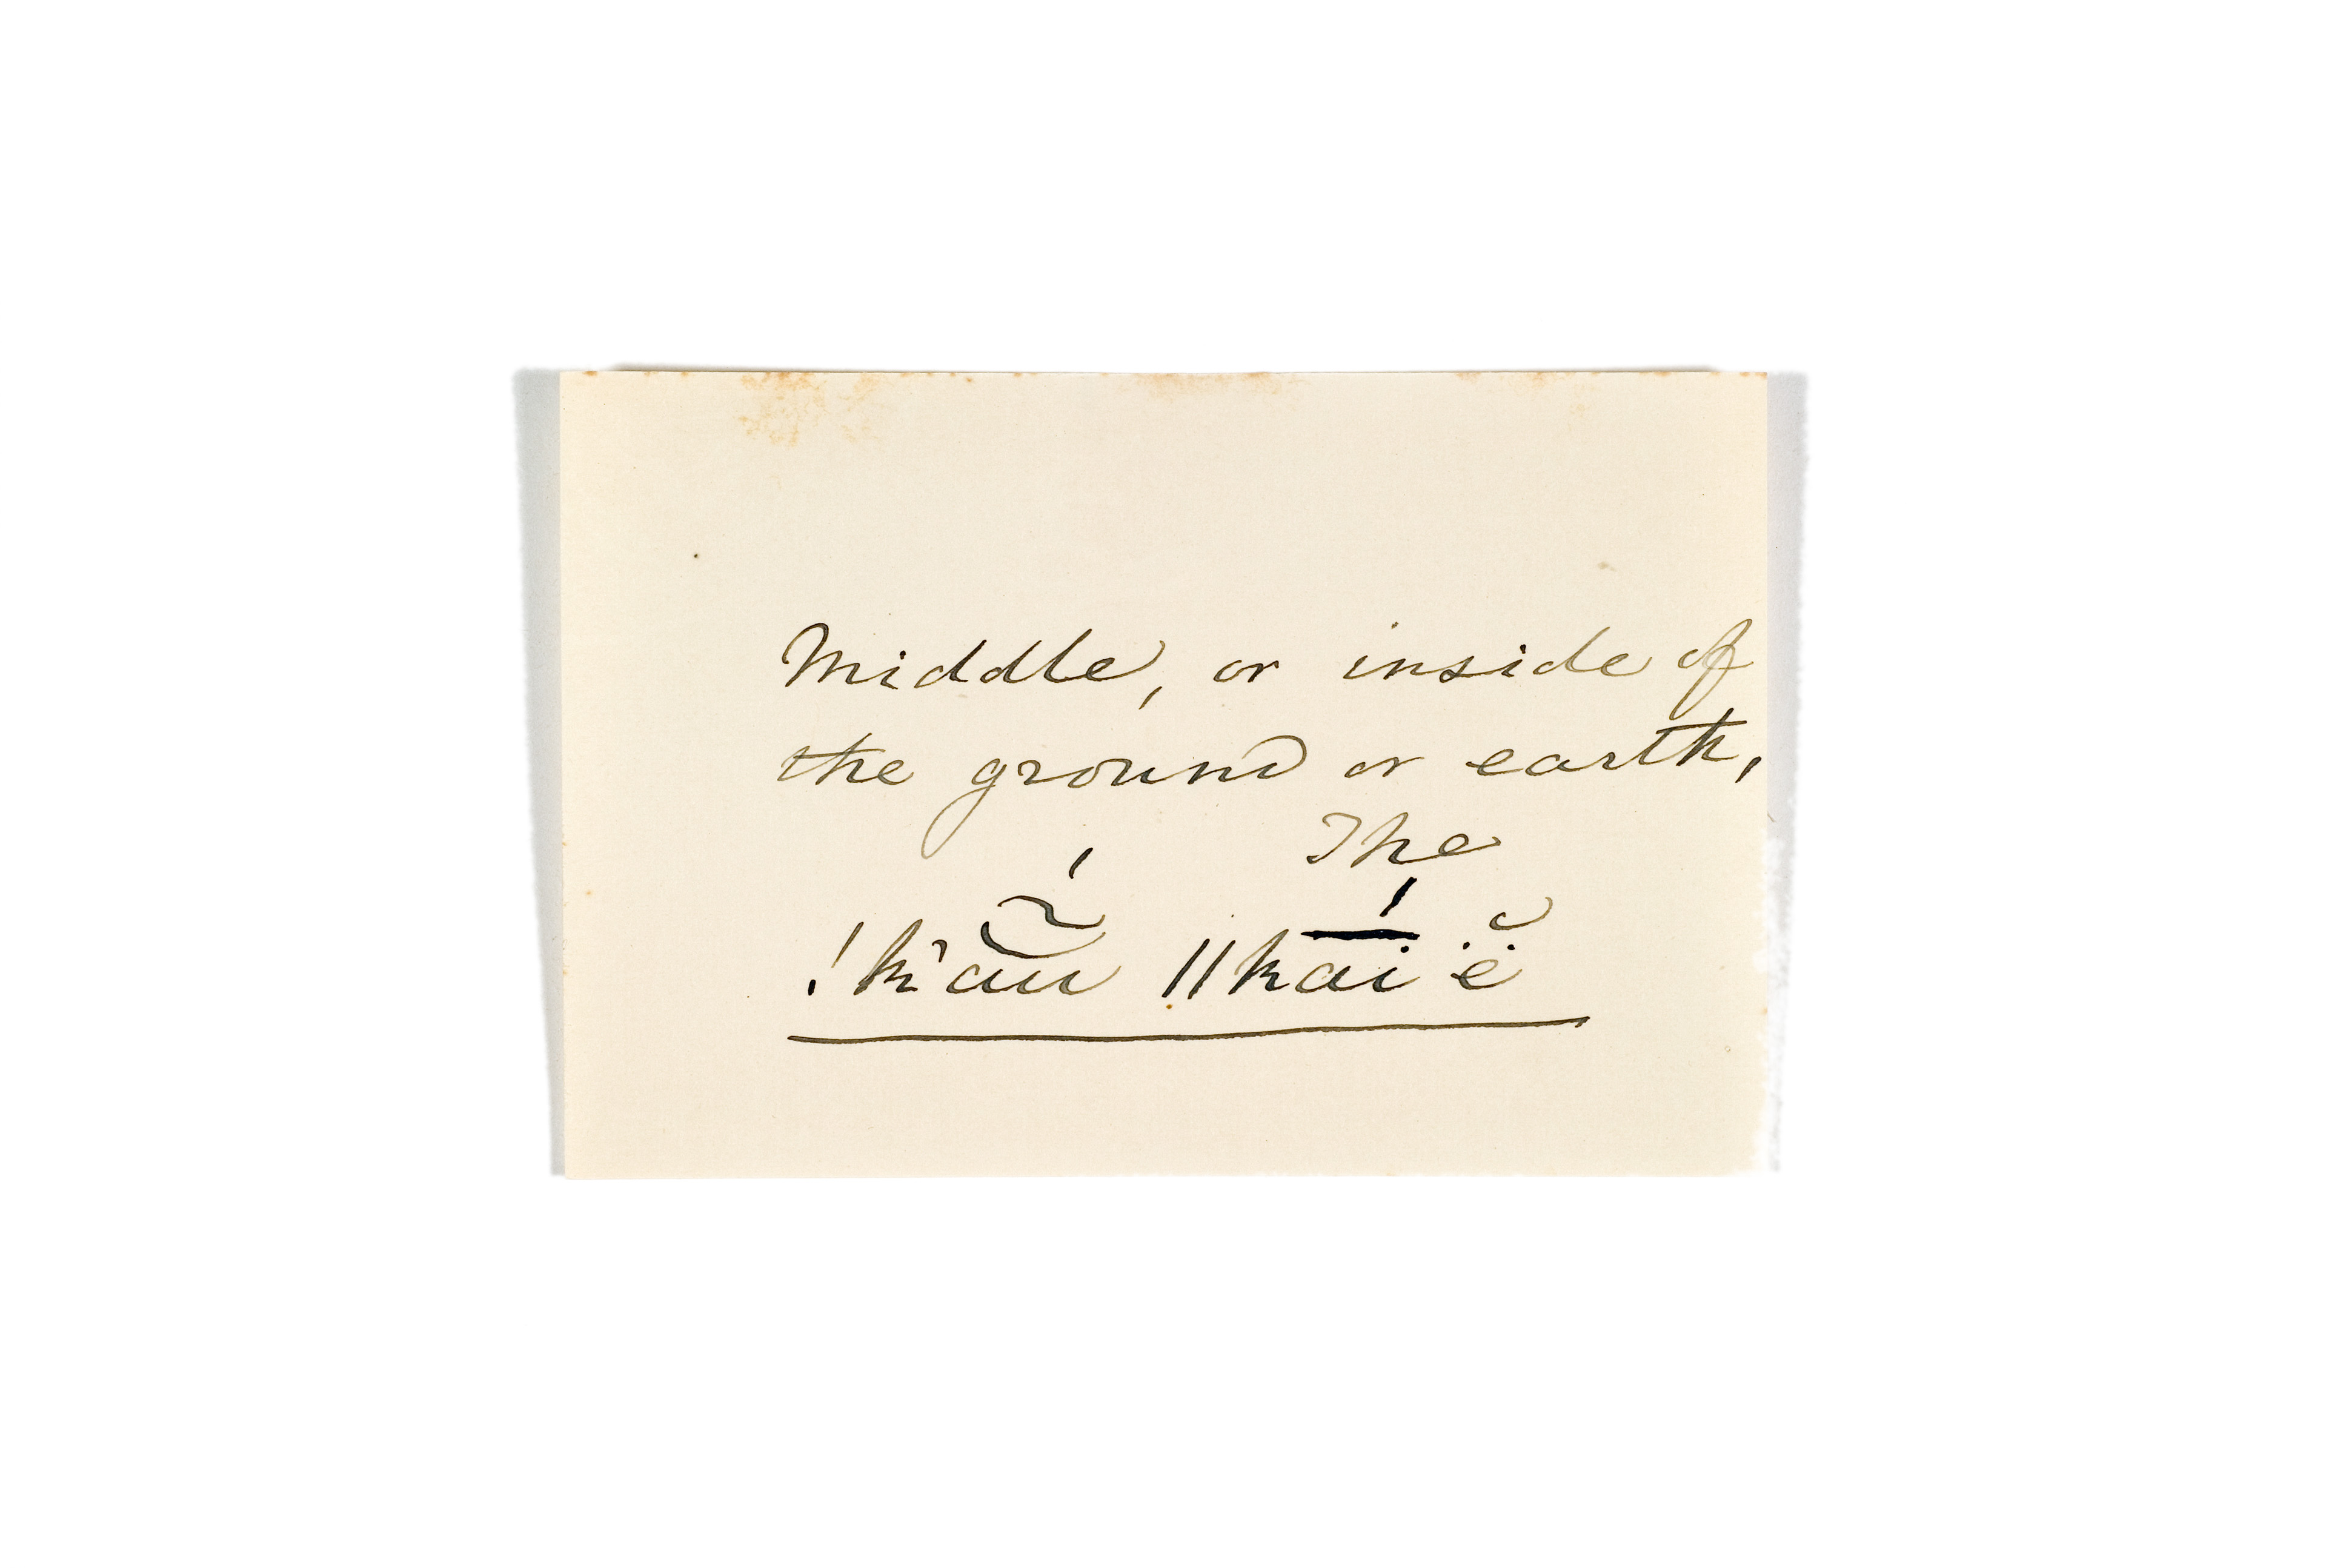 Middle, or inside of
the ground or earth,
The
!k'ã̆ú ǁkaī́ ë̆